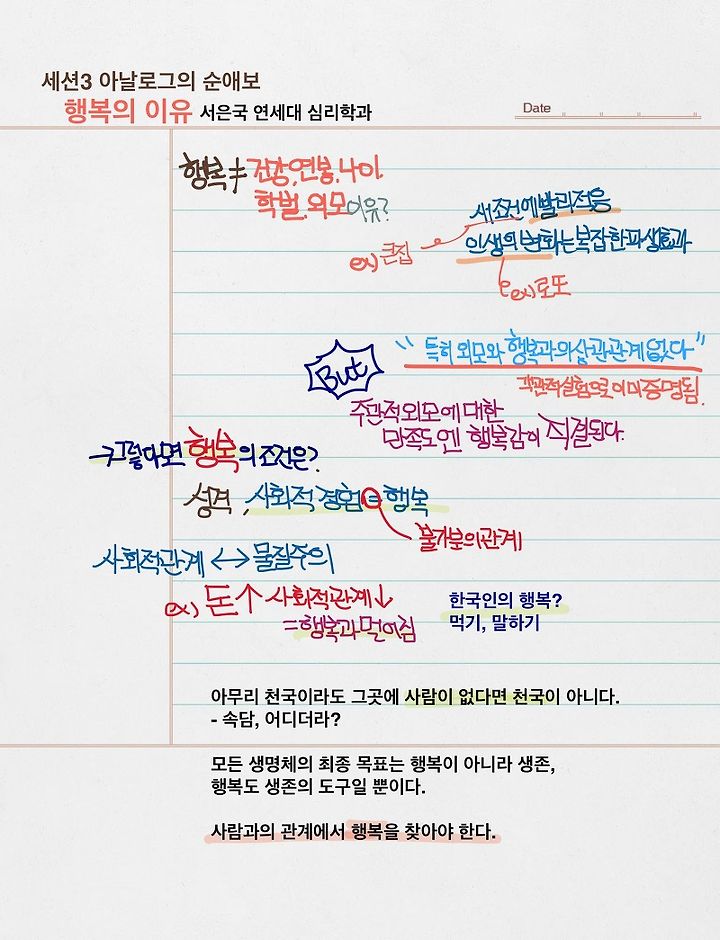 세션3 아날로그의 순애보
행복의 이유 서은국 연세대 심리학과
Date
행복≠건강.연봉.나이.
학벌.외모 이유?
새조건에빨리적응
ex) 큰집
인생의변화는복잡한파생효과
ex)로또
But
"특히 외모와 행복과의상관관계없다"
객관적실험으로이미증명됨.
주관적외모에대한
만족도엔 행복감이 직결된다.
→그렇다면 행복의조건은?
성격, 사회적 경험=행복
불가분의관계
사회적관계↔물질주의
ex) 돈↑ 사회적관계↓
=행복과멀어짐
한국인의 행복?
먹기, 말하기
아무리 천국이라도 그곳에 사람이 없다면 천국이 아니다.
- 속담, 어디더라?
모든 생명체의 최종 목표는 행복이 아니라 생존,
행복도 생존의 도구일 뿐이다.
사람과의 관계에서 행복을 찾아야 한다.